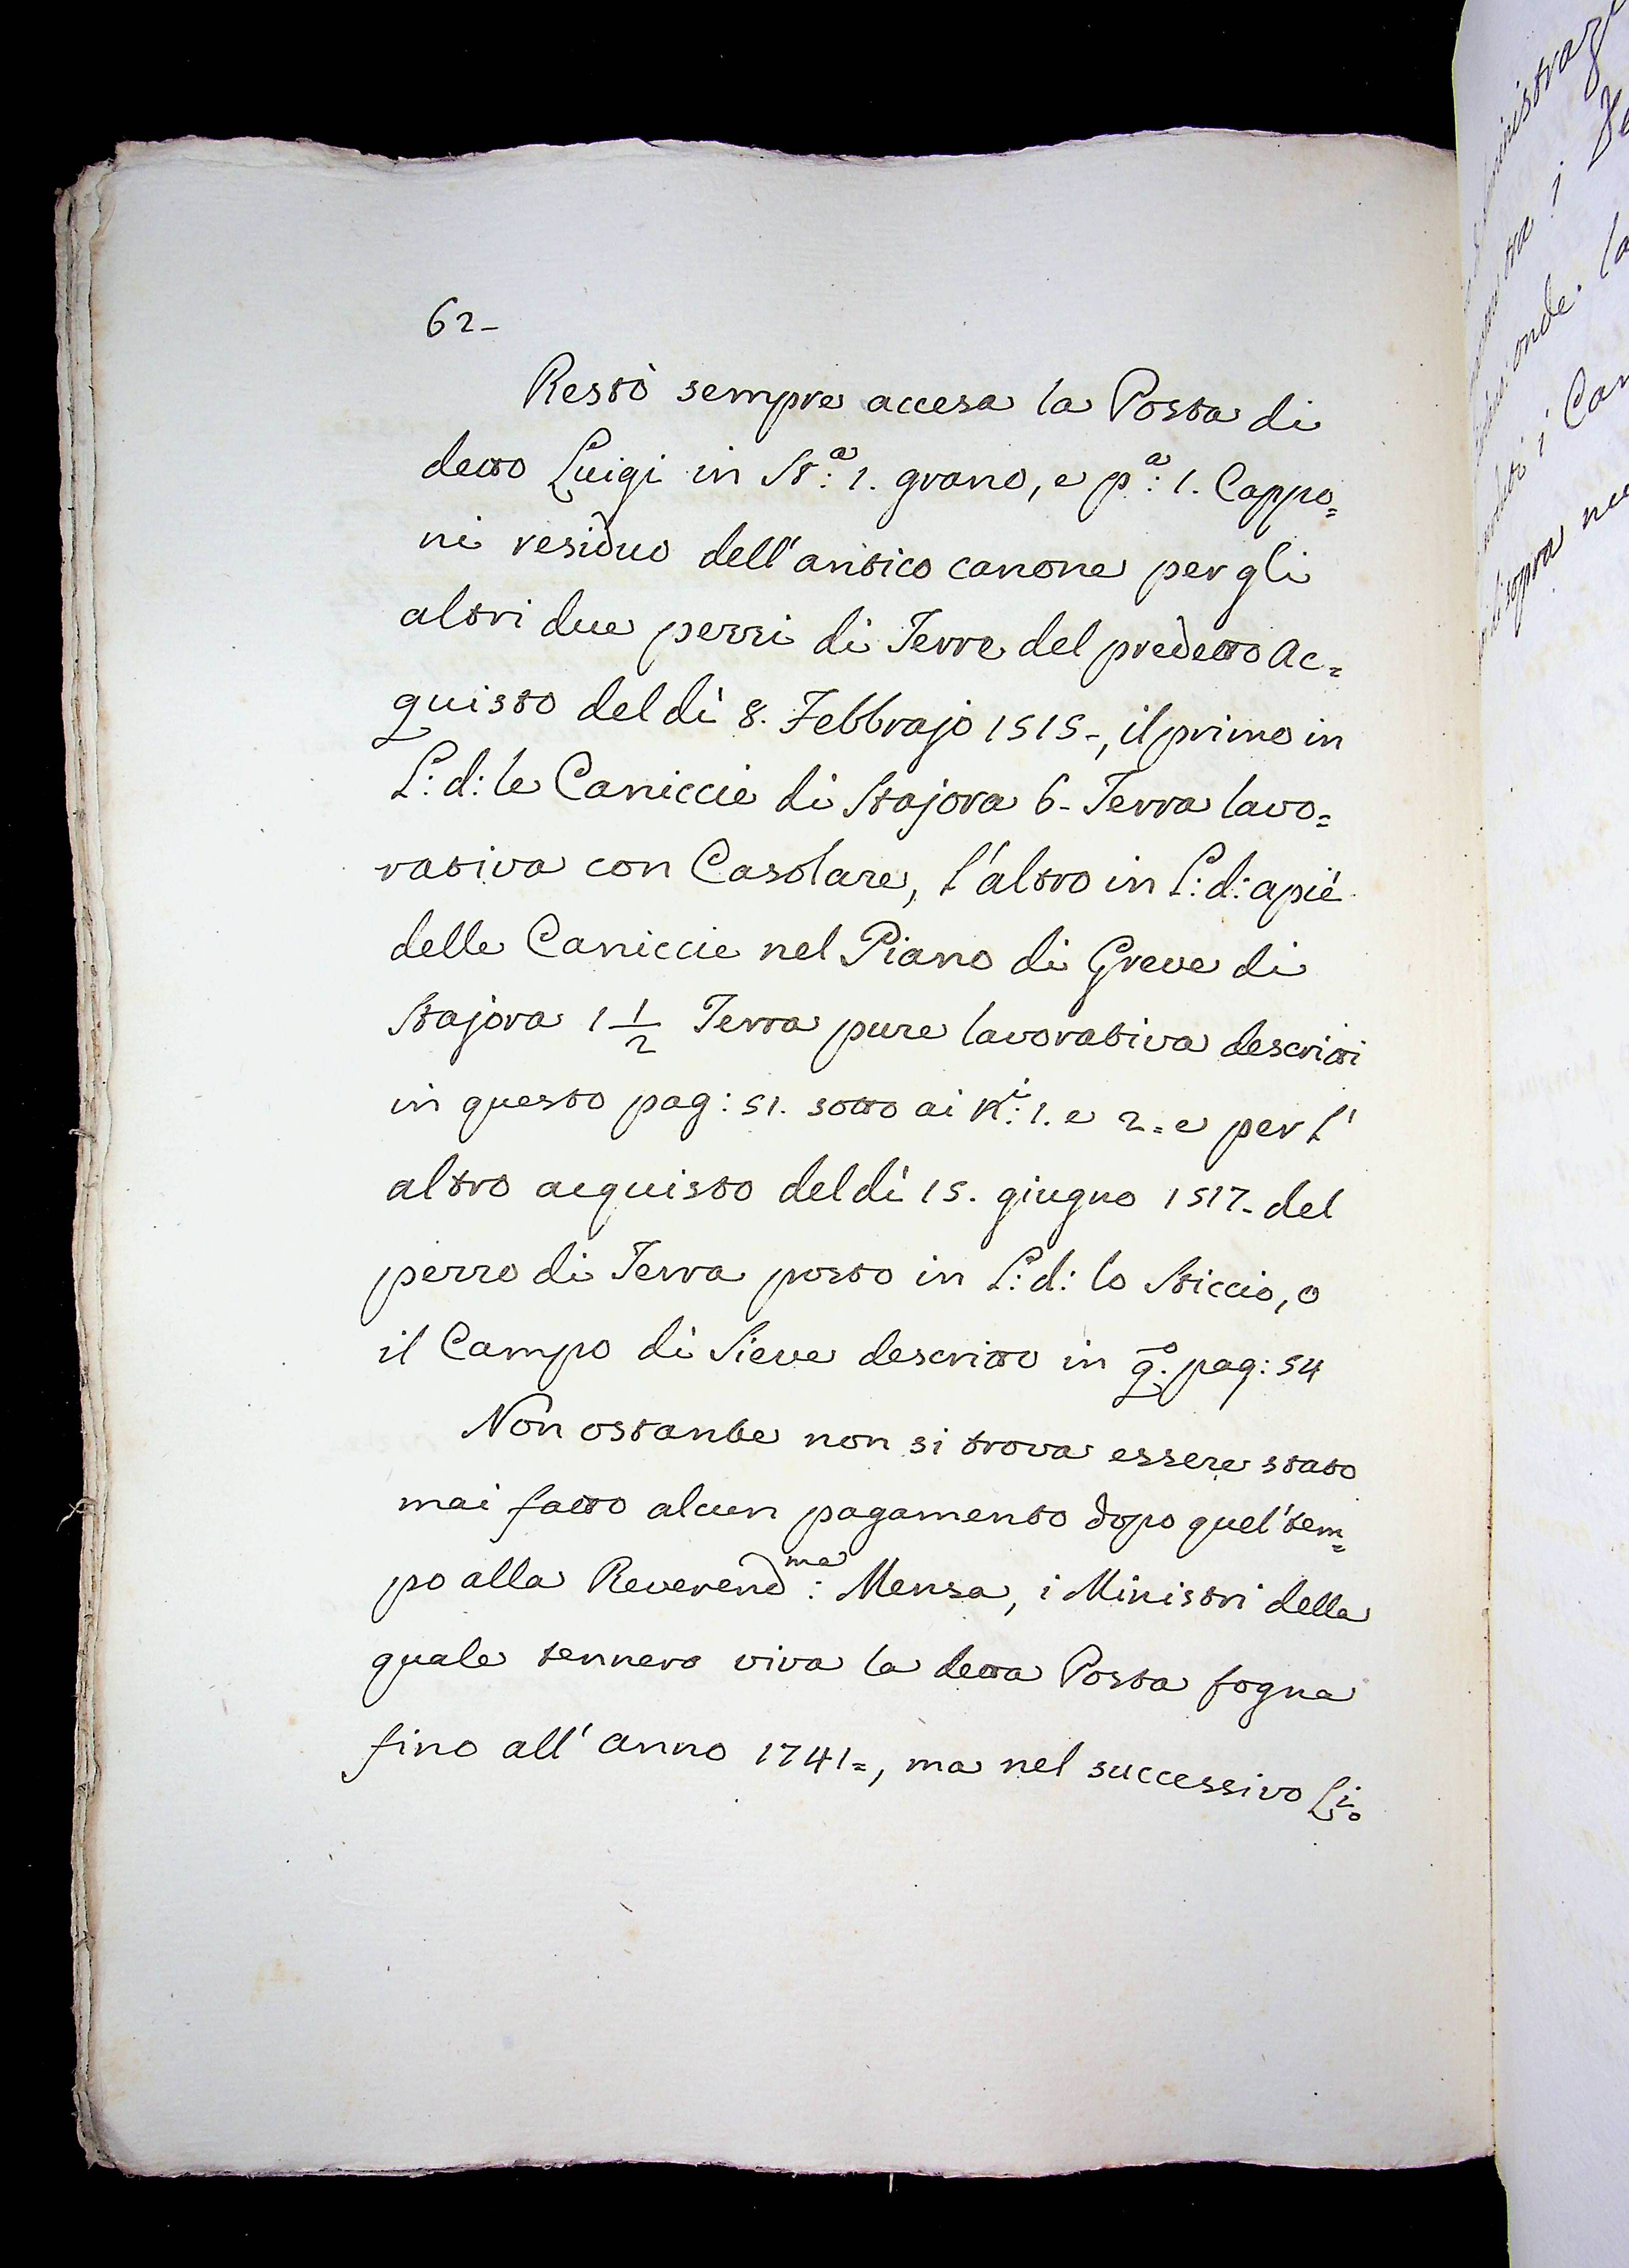 62-
Restò sempre accesa la Posta di
detto Luigi in St.ª: 1. grano, e p.ª: 1. Cappo=
ni residuo dell'antico canone per gli
altri due pezzi di Terre del predetto Ac=
quisto del dì 8. Febbrajo 1515-, il primo in
L: d: le Caniccie di Stajora 6- Terra lavo=
rativa con Casolare, l'altro in L: d: apiè
delle Caniccie nel Piano di Greve di
Stajora 1 1/2 Terra pure lavorativa descritti
in questo pag: 51. sotto ai N.i: 1. e 2= e per l'
altro acquisto del dì 15. giugno 1517- del
pezzo di Terra posto in L: d: lo Sticcio, o
il Campo di Sieve descritto in q.o: pag: 54
Non ostante non si trova essere stato
mai fatto alcun pagamento dopo quel'tem=
po alla Reverend.ma: Mensa, i Ministri della
quale tennero viva la detta Posta fogna
fino all'anno 1741=, ma nel successivo Li=
ministraz
i
onde la
i Can
di sopra